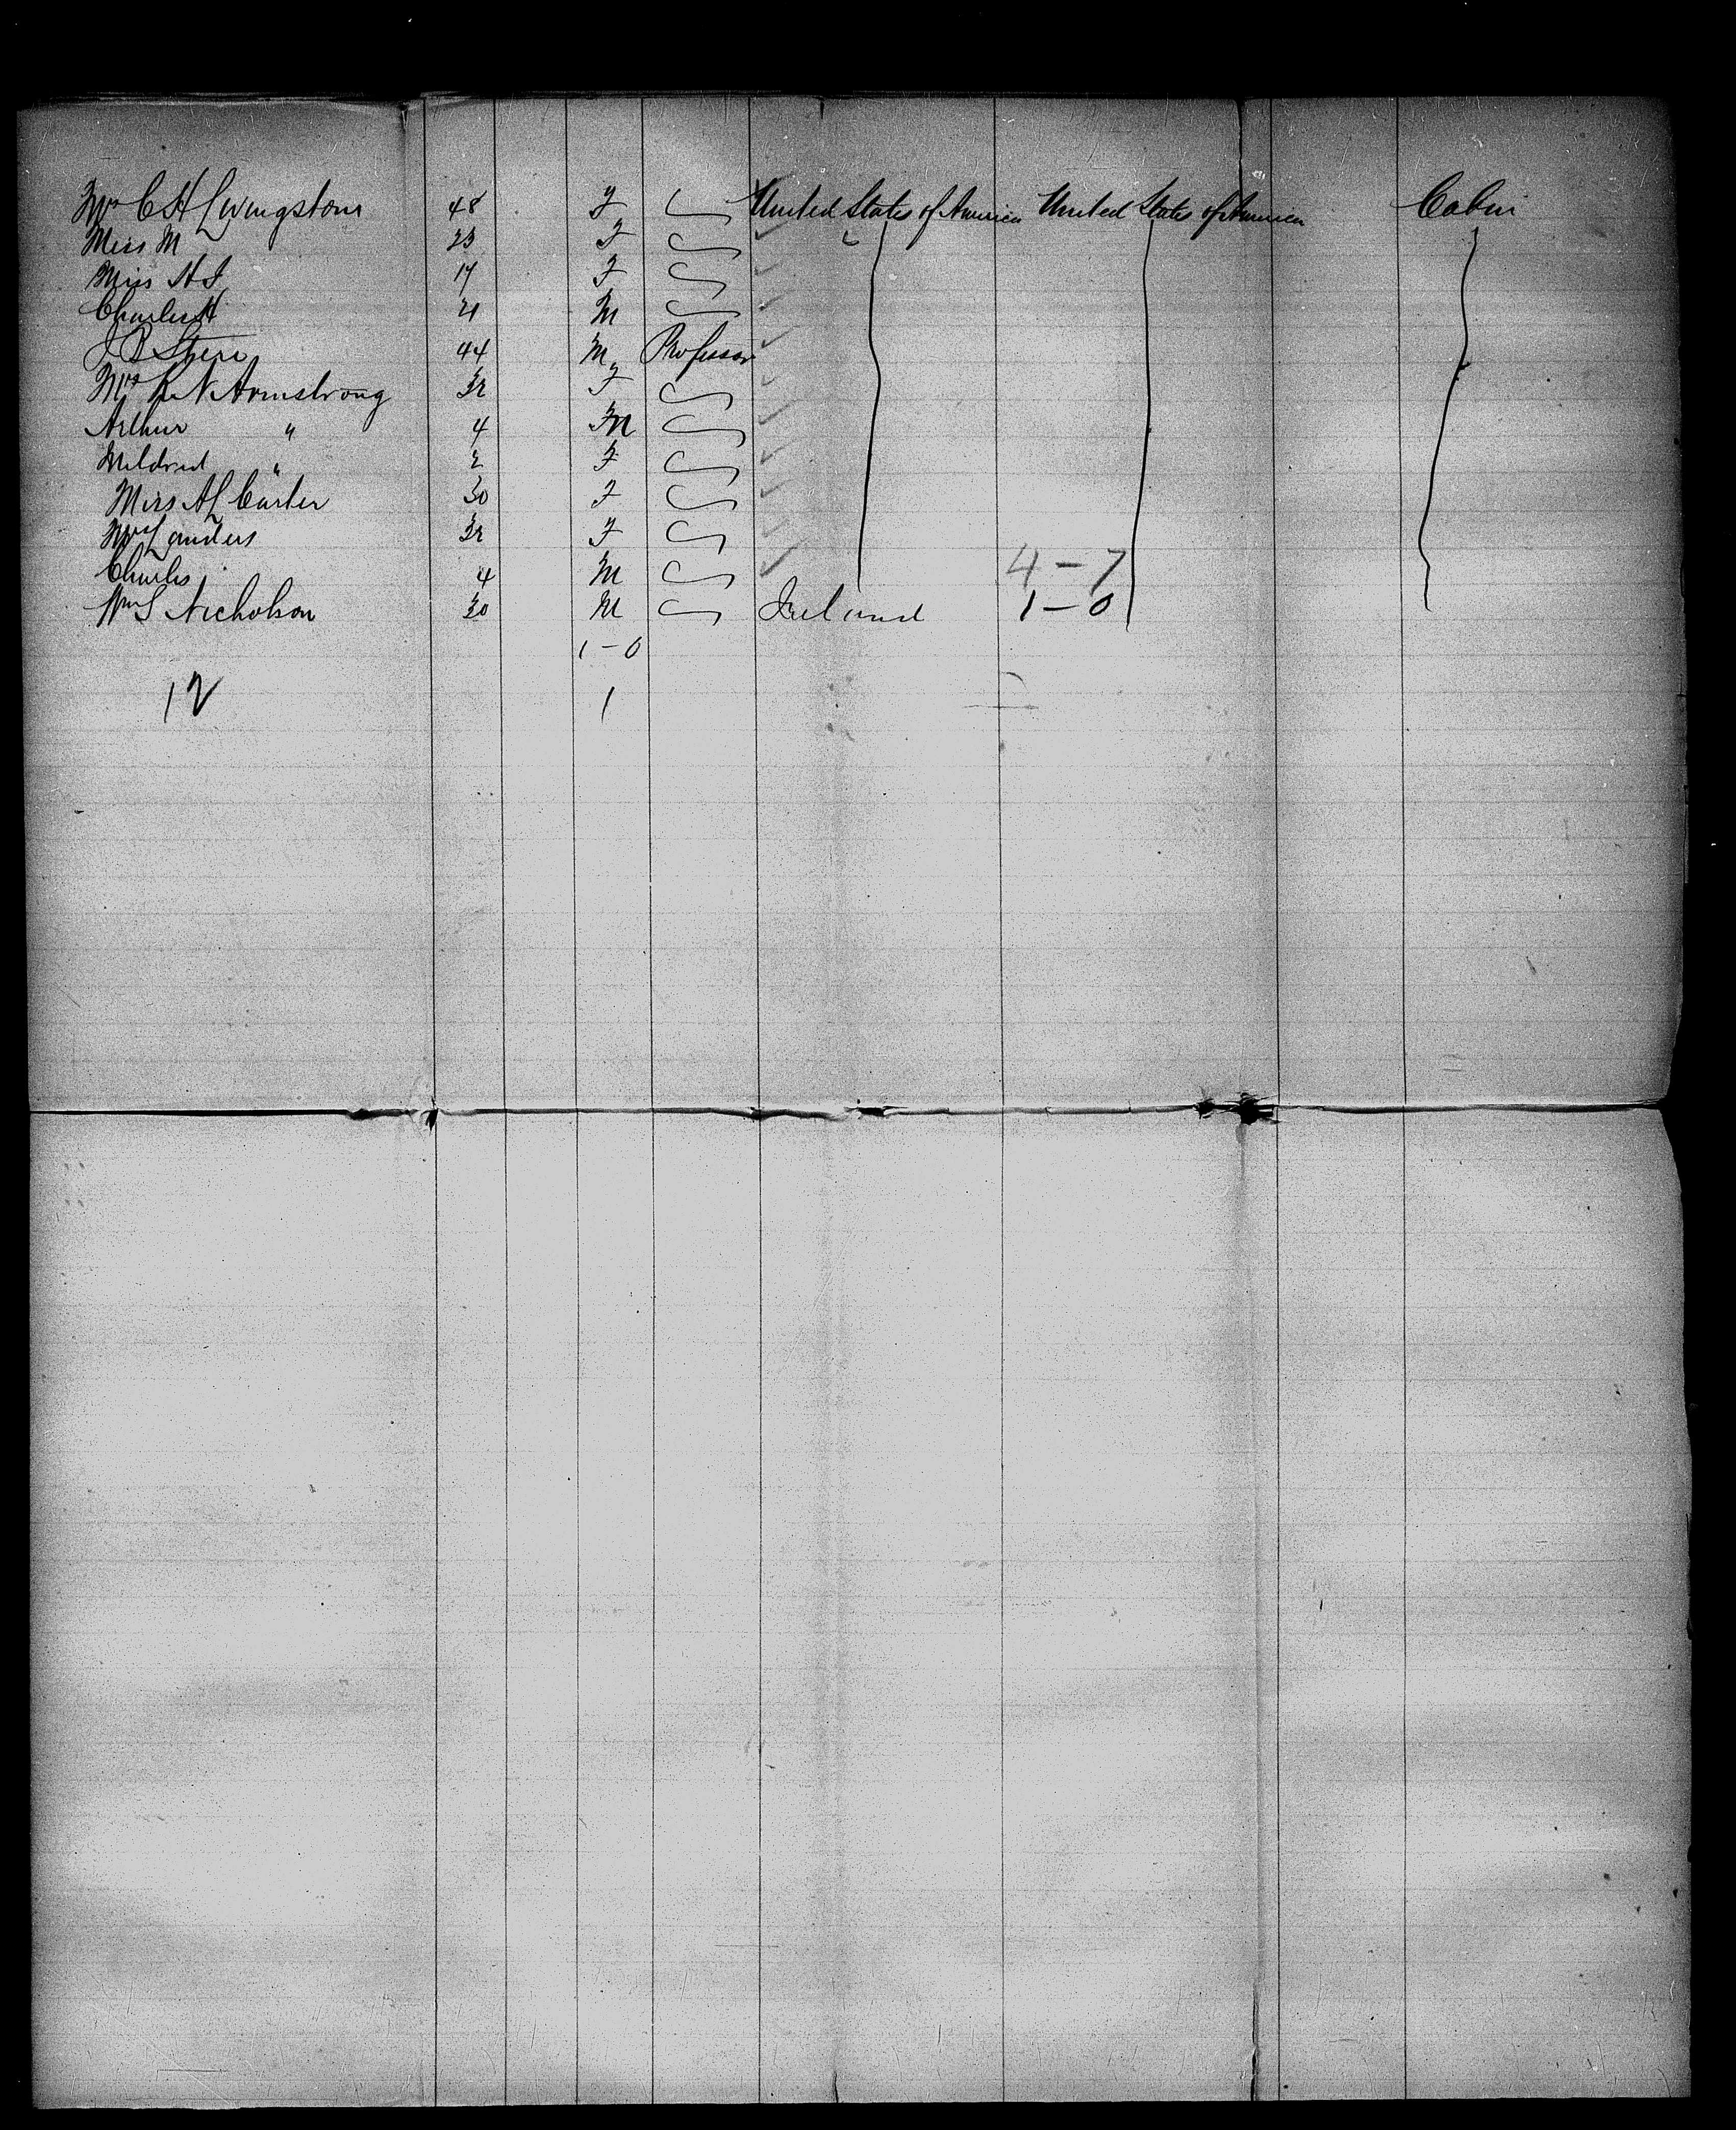 Mrs C H Livingston 48 F United States of America United States of America Cabin
Miss M 23 F
Miss H I 17 F
Charles H 21 M
J B Stere 44 M Professor
Mrs L N Armstrong 32 F
Arthur " 4 M
Mildred " 2 F
Miss A L Carter 30 F
Mrs Landers 32 F
Charles 4 M 4-7
Wm S Nicholson 30 M Ireland 1-0
1-0
12 1